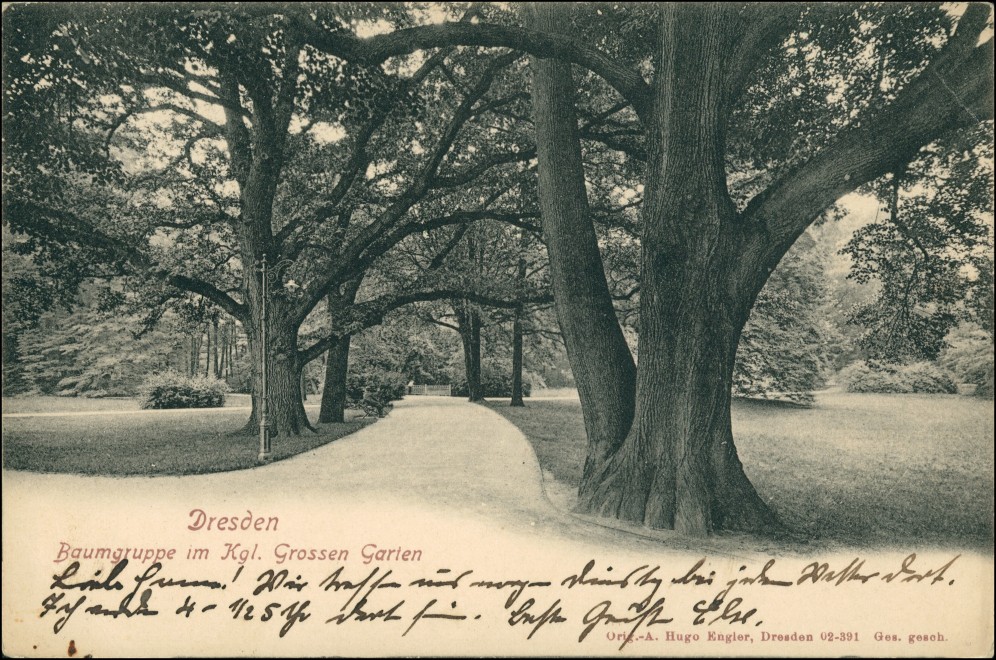 Dresden
Baumgruppe im Kgl. Grossen Garten
Liebe Hanna! Wir treffen uns morgen Dienstg bei jedem Wetter dort.
Ich werde 4 - 1/2 5 Uhr dort sein. Beste Grüße Else.
Orig.-A. Hugo Engler, Dresden 02-391 Ges. gesch.